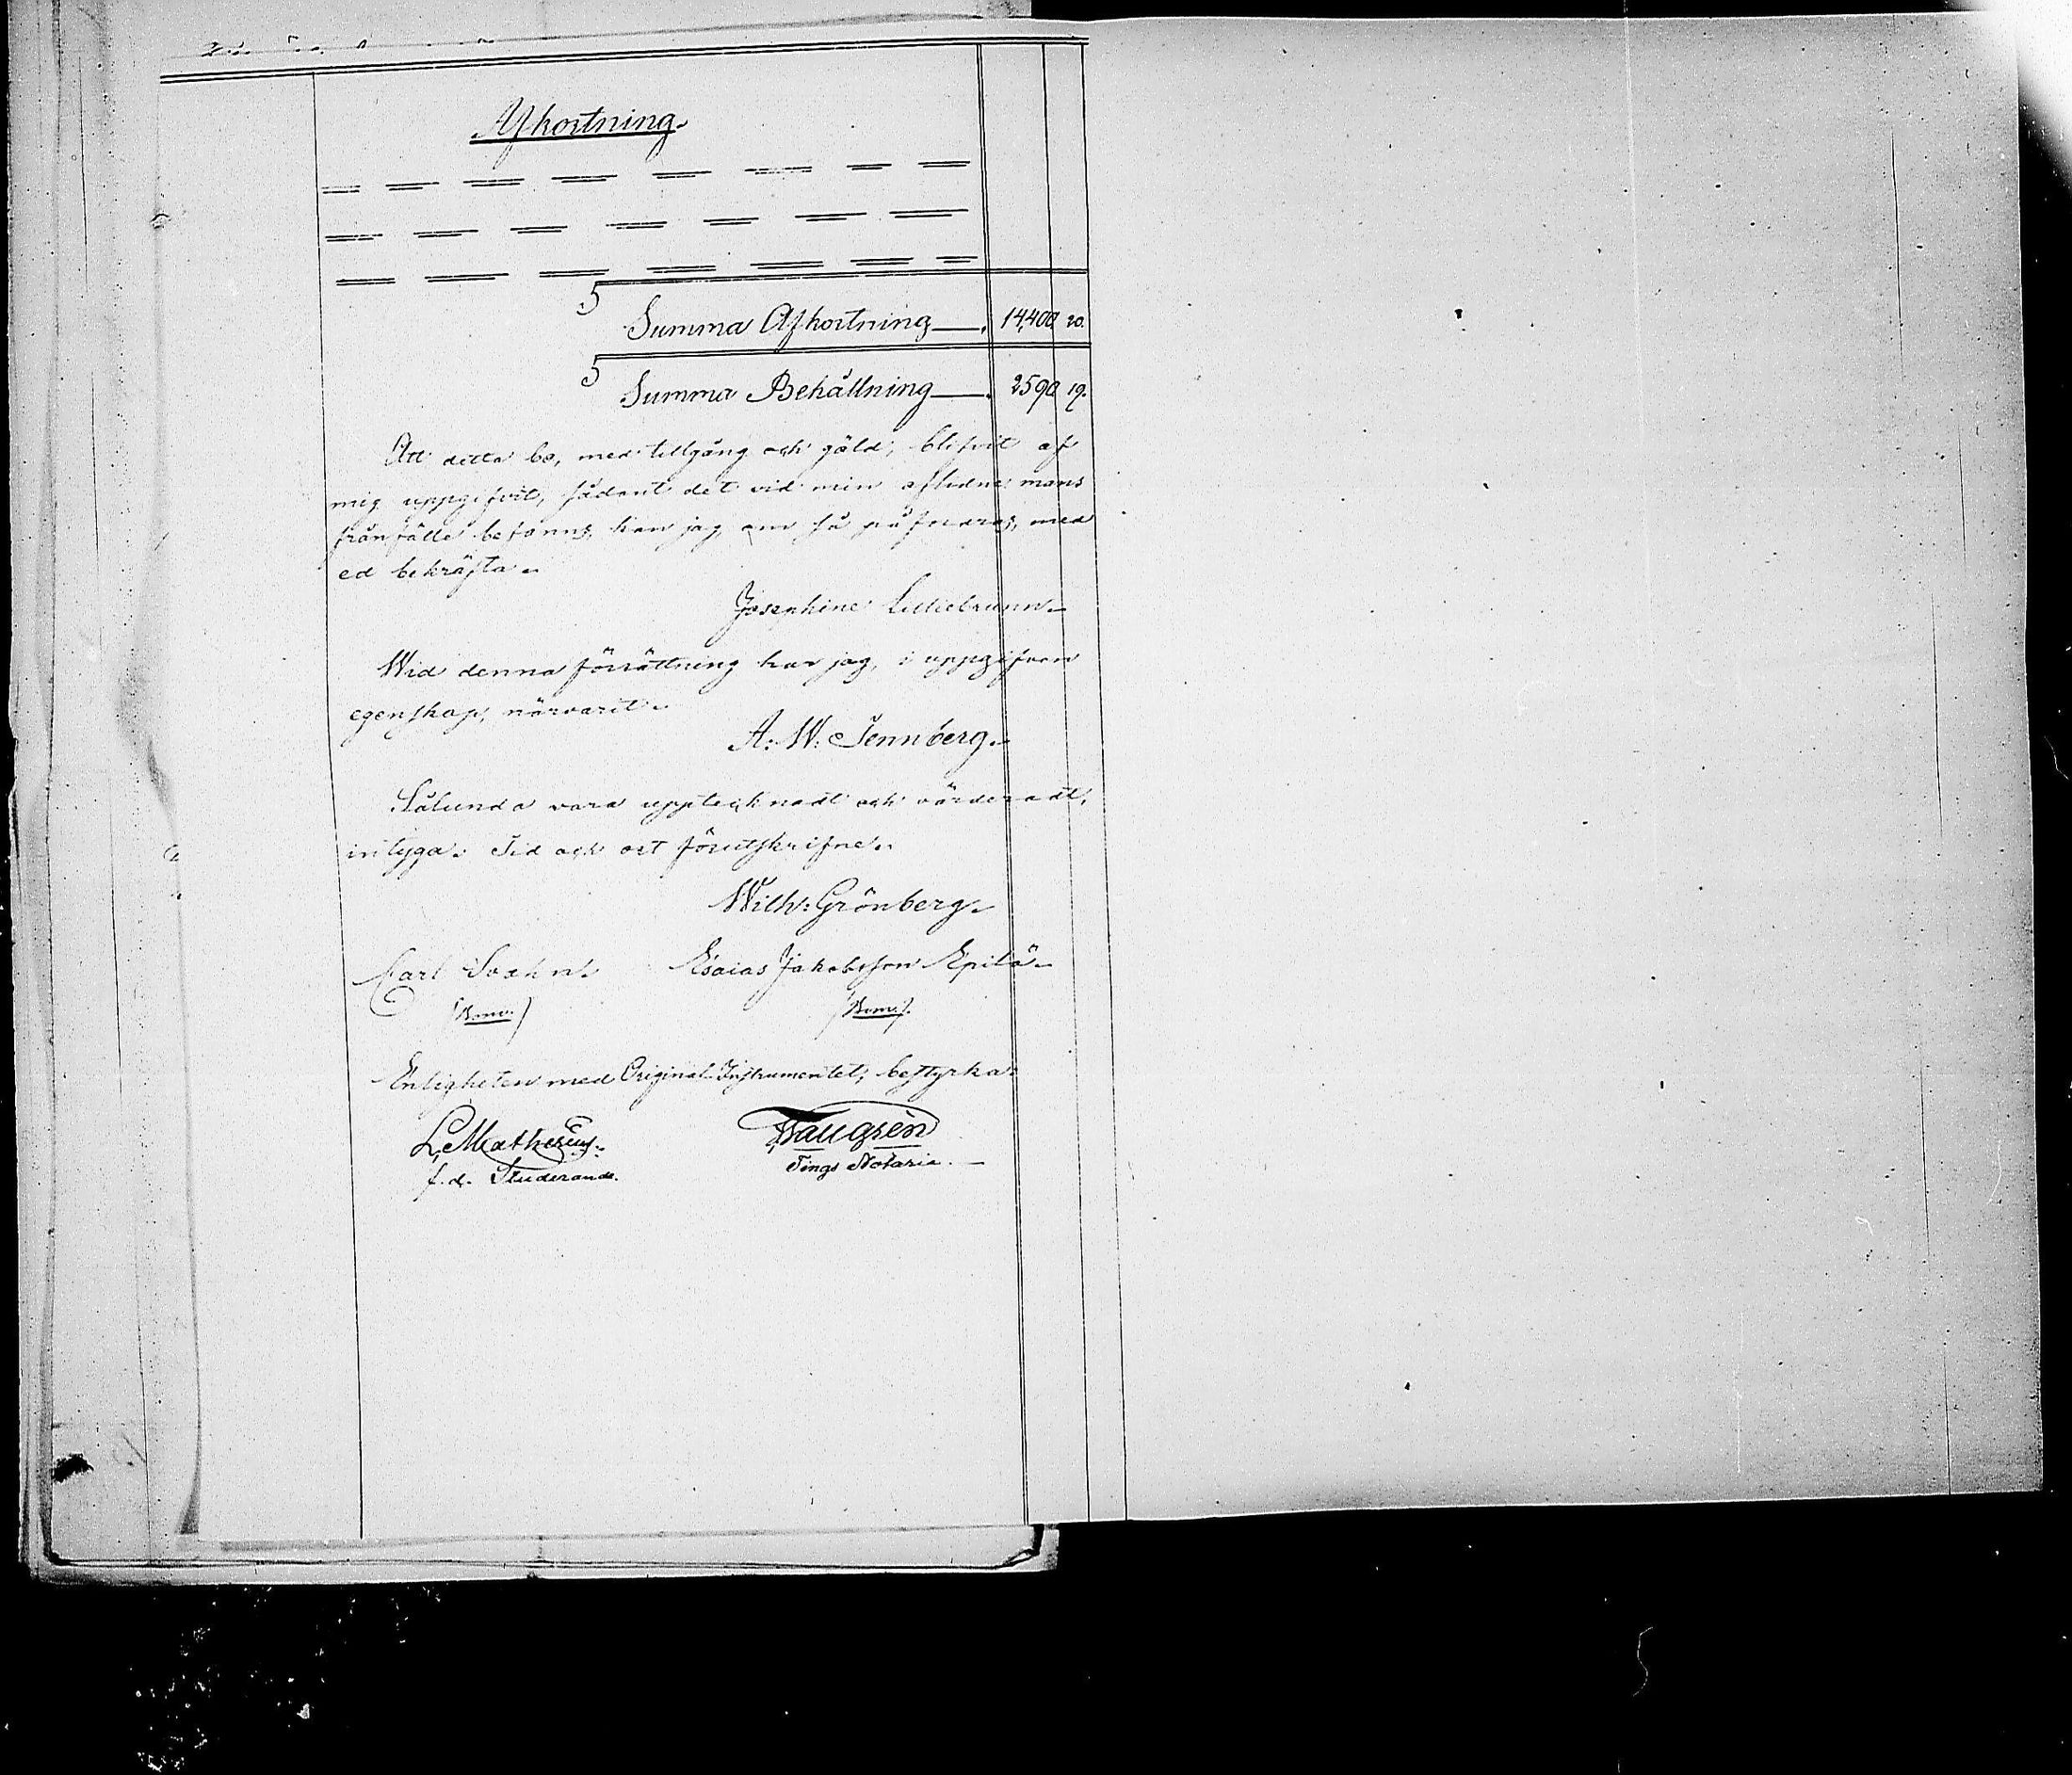 Afkortning.
Summa Afkortning 14,400 20.
Summa Behållning 2590 19.
Att detta bo, med tillgång och gäld, blifvit af
mig uppgifvit, sådant det vid min aflidne mans
frånfälle befanns, kan jag, om så påfordras, med
ed bekräfta.
Josephine Lilliebrunn.
Wid denna förrättning har jag, i uppgifven
egenskap, närvarit.
A: W: Tennberg.
Sålunda vara upptecknadt och värderadt,
intyga. Tid och ort förutskrifne.
Wilh: Grönberg.
Carl Svahn. Esaias Jakobsson Epilä.
Enligheten med Original-Instrumentet, bestyrka:
L. Mathesius.
f. d. Studerande. Tings Notarie.